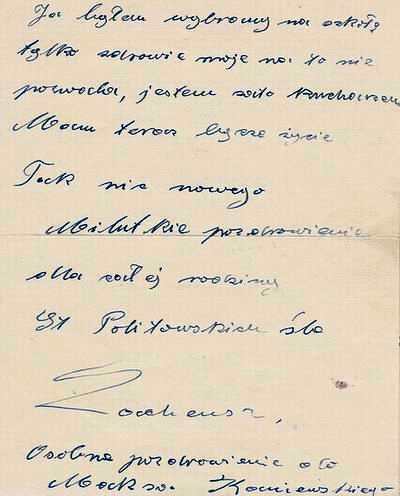 Ja byłem wybrany na szkołę
tylko zdrowie moje na to nie
pozwocha, jestem zato kucharzem
Mam teraz lepsze życie
Tak nic nowego
Milutkie pozdrowienia
dla całej rodziny
Politowskich śle
Osobne pozdrowienie dla
Maksa. Kaniewskiego